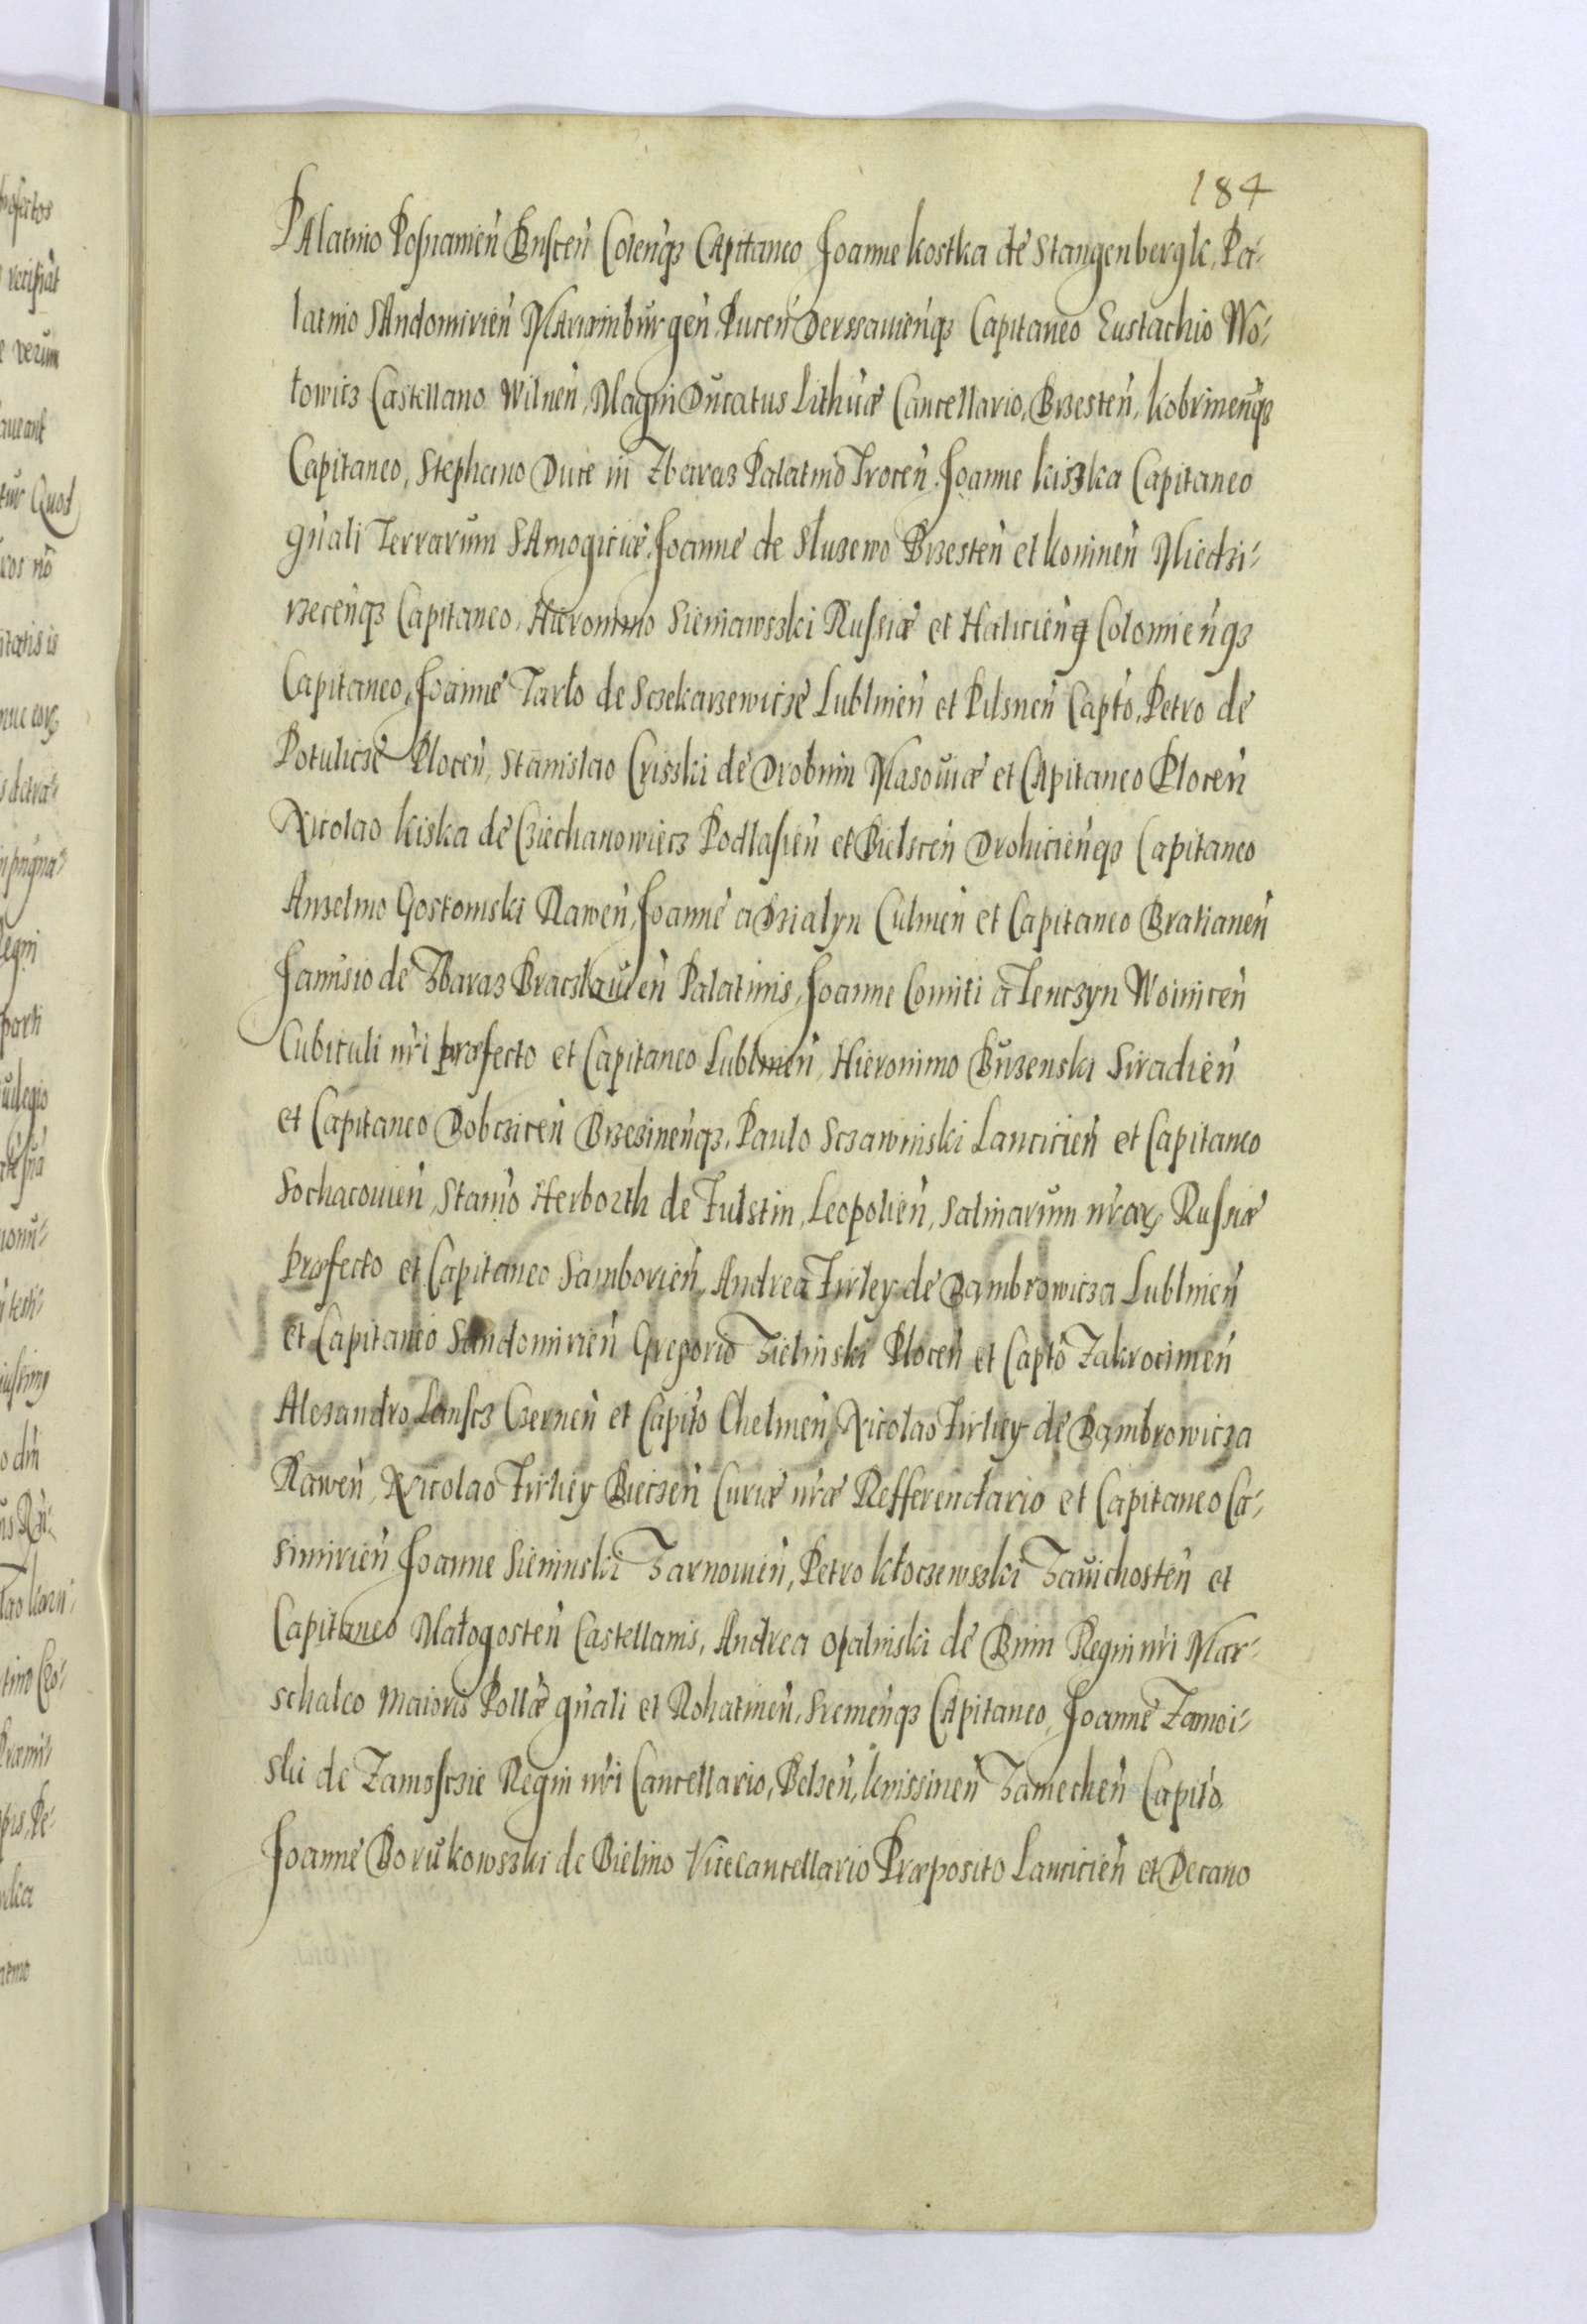 184
Palatino Posnanień Buscen Colenq3 Capitaneo Joanne kostka de Stangenbergk, Pa-
latino Sandomirień Mariainburgeń Pucen Derssauienq3 Capitaneo Eustachio Wo-
łowicz Castellano Wilneń, Magni Ducatus Lithuæ Cancellario, Brzesteń, kobrinenq3
Capitaneo, Stephano Duce in Zbaraz Palatino Troceń, Joanne kiszka Capitaneo
gnali Terrarum Samogitiæ, Joanne de Sluzewo Brzesteń et koninen Miedzi-
rzecenq3 Capitaneo, Hieronimo Sieniawszki Russiæ et Halicienq Colomienq3
Capitaneo, Joanne Tarło de Sczekarzewicze Lublineń et Pilsneń Capto, Petro de
Potulicze Ploceń, Stanislao Crisski de Drobnin Masouiæ et Capitaneo Ploceń
Nicolao kiska de Cziechanowiecz Podlasień et Bielsceń Drohicienq3 Capitaneo
Anzelmo Gostomski Raweń, Joanne a Dzialyn Culmeń et Capitaneo Bratianeń
Janusio de Zbaraz Braczlauień Palatinis, Joanne Comiti a Tenczyn Woiniceń
Cubiculi nri præfecto et Capitaneo Lublineń, Hieronimo Buzenski Siradień
et Capitaneo Dobcziceń Brzezinenq3, Paulo Sczawinski Lancicień et Capitaneo
Sochacouień, Stanło Herborth de Fulstin, Leopolień, Salinarum nrar Russiæ
præfecto et Capitaneo Samborień, Andrea Firley de Dambrowicza Lublineń
et Capitaneo Sandomirień Gregorio Zielinski Ploceń et Capto Zakrocimeń
Alexandro Lanscz Czerneń et Capito Chelmeń, Nicolao Firliey de Dambrowicza
Raweń, Nicolao Firliey Bieczeń Curiæ nræ Refferendario et Capitaneo Ca-
simirień Joanne Sieninski Zarnouień, Petro kłoczewszki Zauichosteń et
Capitaneo Małogosteń Castellanis, Andrea opalinski de Bnin Regni nri Mar-
schalco Maioris Pollæ gnali et Rohatineń, Sremenq3 Capitaneo, Joanne Zamoi-
ski de Zamosczie Regni nri Cancellario, Belzeń, knissineń Zamecheń Capito,
Joanne Borukowszki de Bielino Vicecancellario Præposito Lancicień et Decano